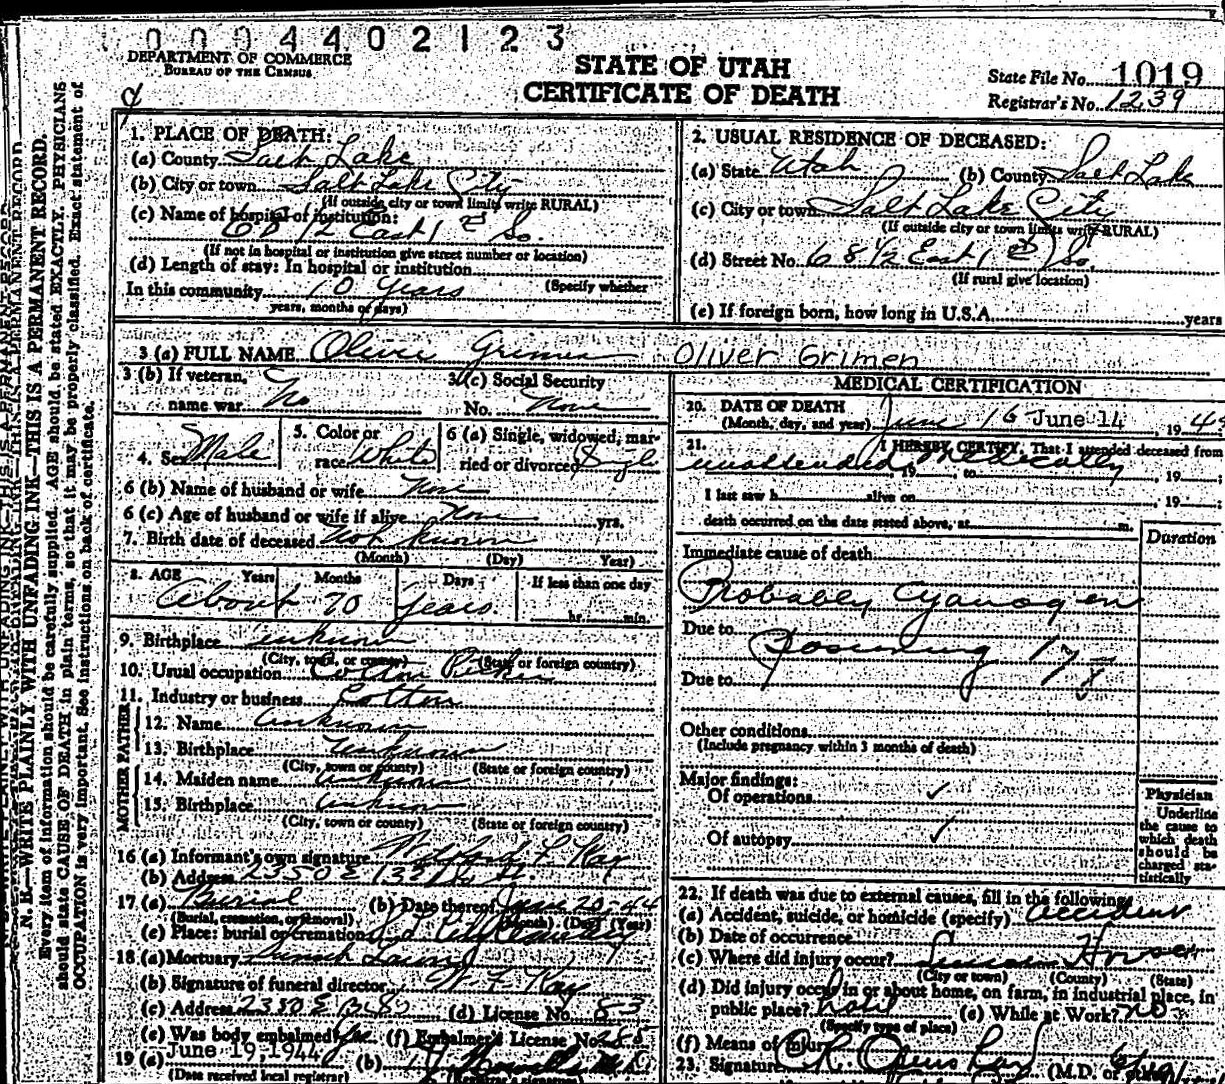 0 0 0 4 4 0 2 1 2 3
DEPARTMENT OF COMMERCE
BUREAU OF THE CENSUS
STATE OF UTAH
CERTIFICATE OF DEATH
State File No. 1019
Registrar's No. 1239
N. B.—WRITE PLAINLY WITH UNFADING INK—THIS IS A PERMANENT RECORD.
Every item of information should be carefully supplied. AGE should be stated EXACTLY. PHYSICIANS
should state CAUSE OF DEATH in plain terms, so that it may be properly classified. Exact statement of
OCCUPATION is very important. See instructions on back of certificate.
1. PLACE OF DEATH:
(a) County Salt Lake
(b) City or town Salt Lake City
(If outside city or town limits write RURAL)
(c) Name of hospital or institution:
68 1/2 East 1st So.
(If not in hospital or institution give street number or location)
(d) Length of stay: In hospital or institution
In this community 10 years (Specify whether
years, months or days)
2. USUAL RESIDENCE OF DECEASED:
(a) State Utah (b) County Salt Lake
(c) City or town Salt Lake City
(If outside city or town limits write RURAL)
(d) Street No. 68 1/2 East 1st So.
(If rural give location)
(e) If foreign born, how long in U.S.A. years
3 (a) FULL NAME Oliver Grimen Oliver Grimen
3 (b) If veteran, name war No
3 (c) Social Security No. None
4. Sex Male
5. Color or race White
6 (a) Single, widowed, married or divorced Single
6 (b) Name of husband or wife None
6 (c) Age of husband or wife if alive None yrs.
7. Birth date of deceased Not known
(Month) (Day) Year)
8. AGE Years Months Days If less than one day
About 70 years hr. min.
9. Birthplace Unknown
(City, town, or county) (State or foreign country)
10. Usual occupation Cotton Picker
11. Industry or business Cotton
FATHER
12. Name Unknown
13. Birthplace Unknown
(City, town or county) (State or foreign country)
MOTHER
14. Maiden name Unknown
15. Birthplace Unknown
(City, town or county) (State or foreign country)
16 (a) Informant's own signature F. Kay
(b) Address 2350 E
17 (a) Burial (b) Date thereof June 20-44
(Burial, cremation, or removal) (Month) (Day) (Year)
(c) Place: burial or cremation City Cemetery
18 (a) Mortuary Sunset Lawn
(b) Signature of funeral director W. F. Kay
(c) Address 2350 E (d) License No. 83
(e) Was body embalmed? Yes (f) Embalmer's License No. 285
19 (a) June 19, 1944 (b) M.D.
(Date received local registrar) (Registrar's signature)
MEDICAL CERTIFICATION
20. DATE OF DEATH
(Month, day, and year) June 16 June 14, 194
21. I HEREBY CERTIFY, That I attended deceased from
unattended medically, 19 to , 19 ;
I last saw h alive on , 19 ;
death occurred on the date stated above, at m.
Duration
Immediate cause of death
Probably Cyanogen
Due to
Poisoning 178
Due to
Other conditions
(Include pregnancy within 3 months of death)
Major findings:
Of operations ✓
Of autopsy ✓
Physician
Underline
the cause to
which death
should be
charged sta-
tistically
22. If death was due to external causes, fill in the following:
(a) Accident, suicide, or homicide (specify) Accident
(b) Date of occurrence
(c) Where did injury occur? House
(City or town) (County) (State)
(d) Did injury occur in or about home, on farm, in industrial place, in
public place? hotel (e) While at Work? no
(Specify type of place)
(f) Means of injury
23. Signature (M.D. or other)